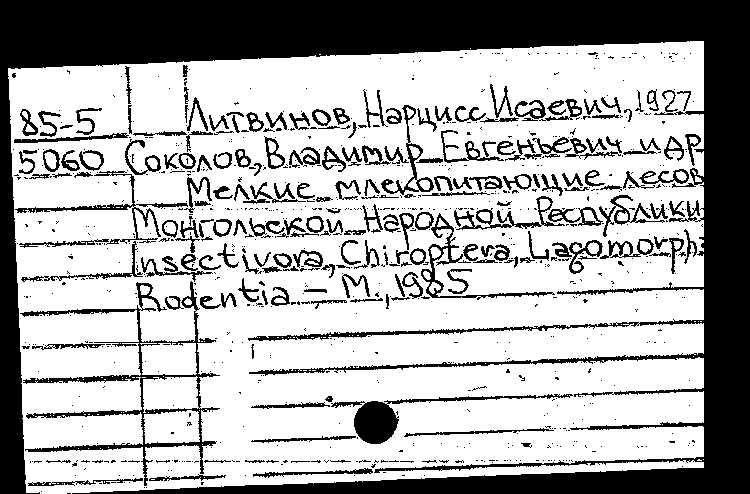 85-5 Литвинов, Нарцисс Исаевич, 1927
5060 Соколов, Владимир Евгеньевич и др
Мелкие млекопитающие лесов
Монгольской Народной Республики
Insectivora, Chiroptera, Lagomorpha
Rodentia – М., 1985